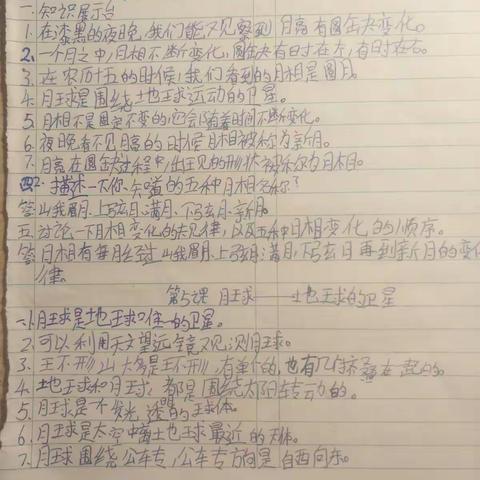 一.知识展示台
1.在漆黑的夜晚,我们能观察到月亮有圆缺变化。
2.一个月之中,月相不断变化,圆缺有时在左,有时在右。
3.在农历十五的时候,我们看到的月相是圆月。
4.月球是围绕地球运动的卫星。
5.月相不是固定不变的,它会随着时间不断变化。
6.夜晚看不见月亮的时候月相被称为新月。
7.月亮在圆缺过程中,出现的形状被称为月相。
四2.描述一下你知道的五种月相名称?
答:山我眉月、上弦月、满月、下弦月、新月。
五.讨论一下月相变化的规律,以及五种月相变化的顺序。
答:月相有每月经过山我眉月、上弦月、满月,下弦月再到新月的变化
律。
第5课 月球——地球的卫星
一.1.月球是地球唯一的卫星。
2.可以利用天文望远镜观测月球。
3.环形山大多是环形,有单个的,也有几个叠在一起的。
4.地球和月球,都是围绕太阳转动的。
5.月球是不发光,透明的球体。
6.月球是太空中离地球最近的天体。
7.月球围绕公转,公转方向是自西向东。